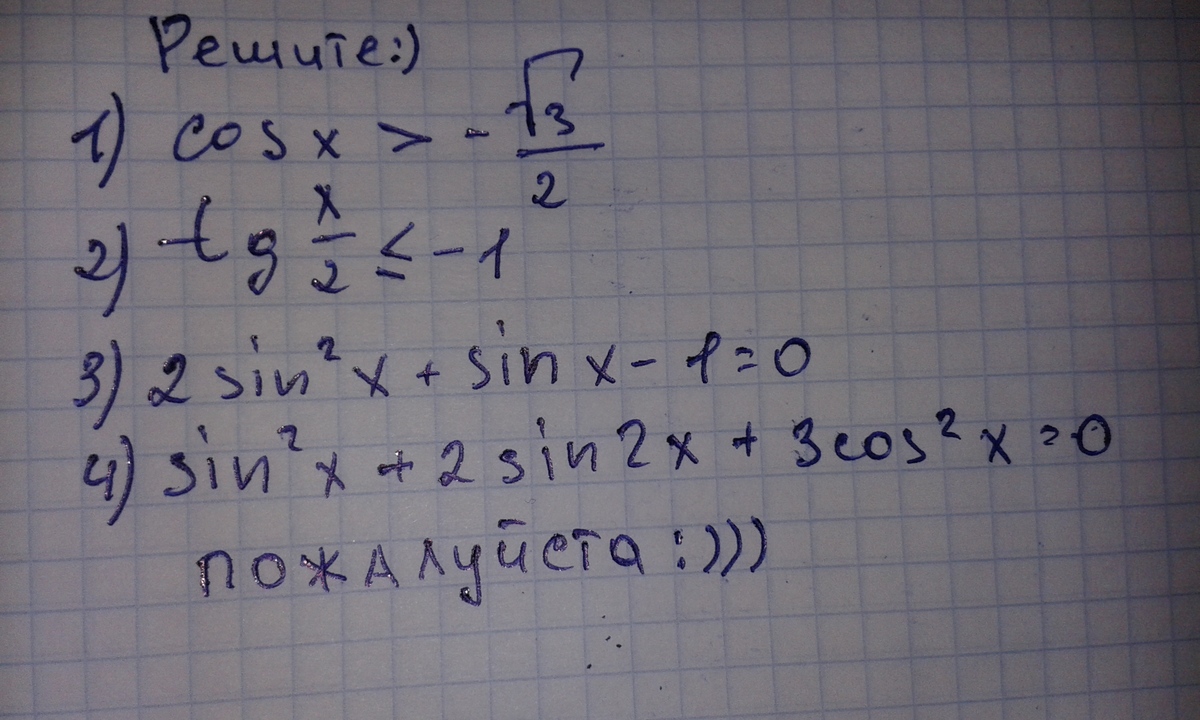 Решите:)
1) cos x > - √3/2
2) tg x/2 ≤ -1
3) 2 sin² x + sin x - 1 = 0
4) sin² x + 2 sin 2x + 3 cos² x = 0
пожалуйста :)))